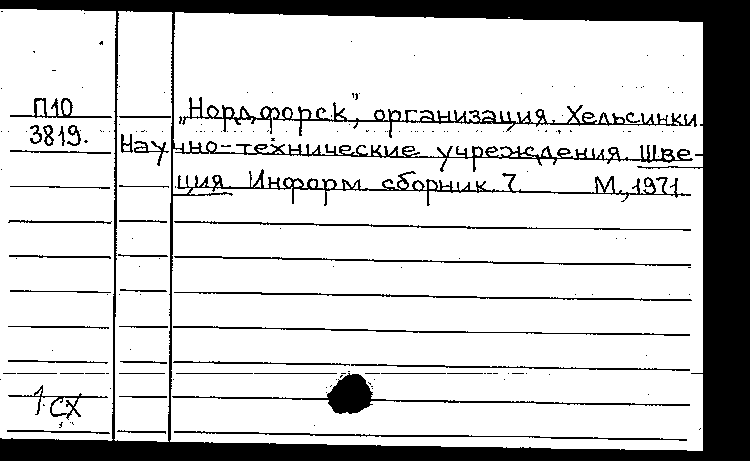 П10
3819.
„Нордфорск", организация. Хельсинки
Научно-технические учреждения. Шве-
ция. Информ. сборник. 7. М., 1971.
1 сх